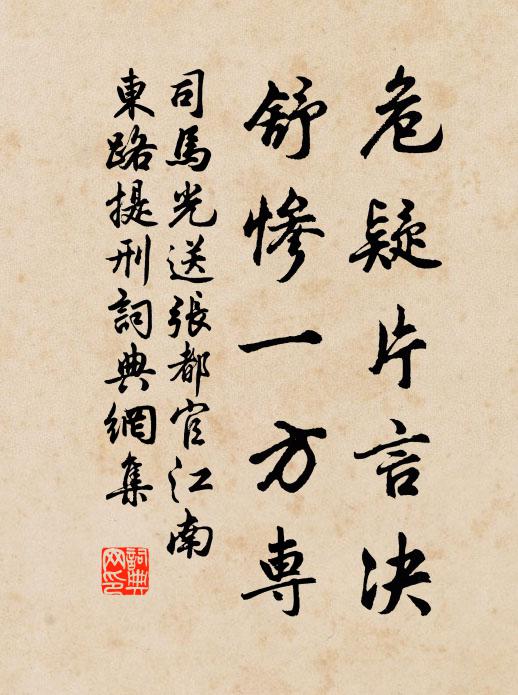 危疑片言决
舒惨一方専
司馬光送張都官江南
東路提刑詞典網集
詞典网印